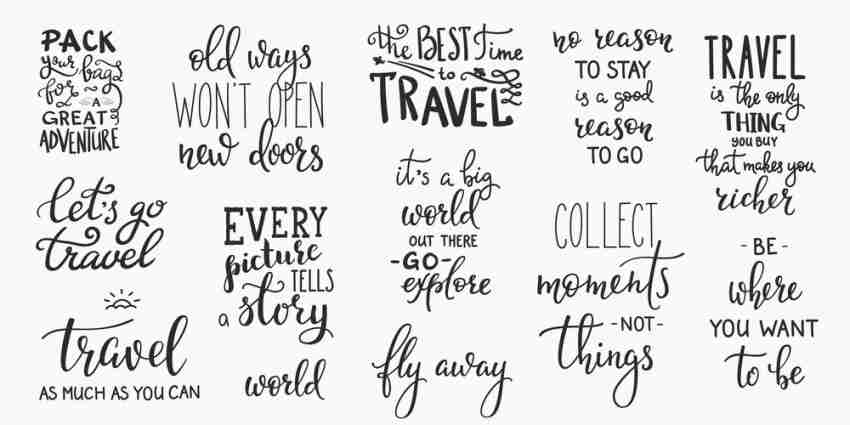 PACK
your bags
for
A
GREAT
ADVENTURE
old ways
WON'T OPEN
new doors
the BEST time
to
TRAVEL
no reason
TO STAY
is a good
reason
TO GO
TRAVEL
is the only
THING
YOU BUY
that makes you
richer
let's go
travel
EVERY
picture
TELLS
a story
it's a big
world
OUT THERE
-GO-
explore
COLLECT
moments
-NOT-
things
- BE -
where
YOU WANT
to be
travel
AS MUCH AS YOU CAN
world
fly away